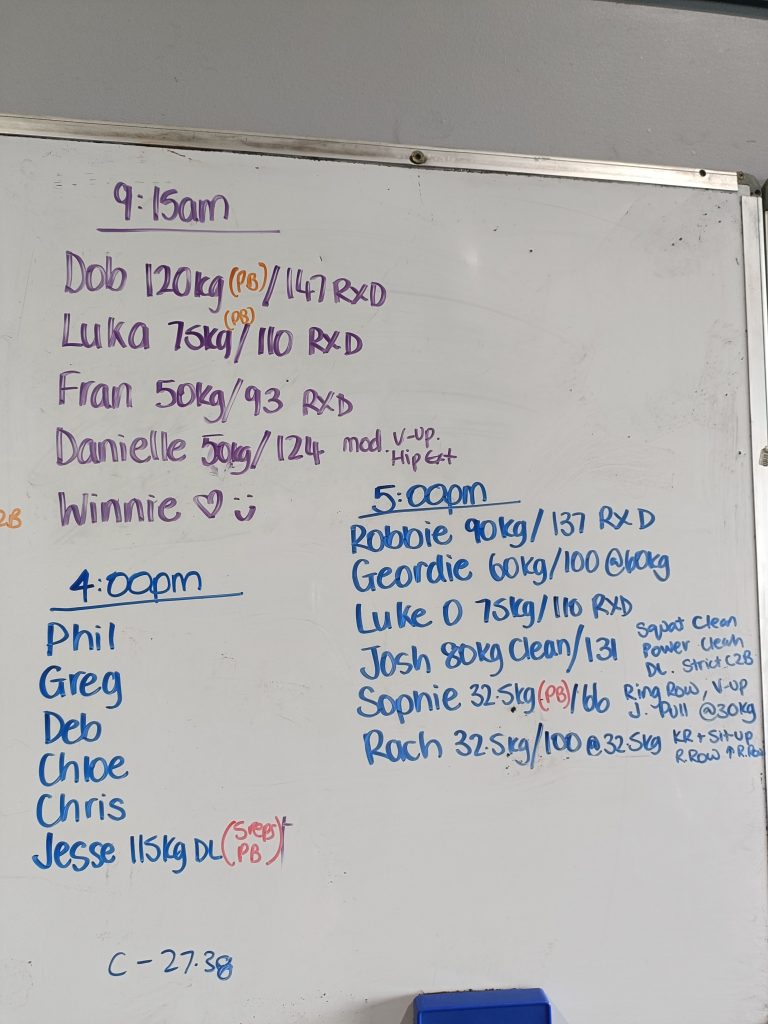 9:15am
Dob 120kg (PB) / 147 RXD
Luka 75kg (PB) / 110 RXD
Fran 50kg/93 RXD
Danielle 50kg/124 mod. V-up.
Hip Ext
Winnie ♡ ü
2B
4:00pm
Phil
Greg
Deb
Chloe
Chris
Jesse 115kg DL (5reps
PB)
C - 27.38
5:00pm
Robbie 90kg/137 RXD
Geordie 60kg/100 @60kg
Luke O 75kg/110 RXD
Josh 80kg Clean/131 Squat Clean
Power Clean
DL. Strict C2B
Sophie 32.5kg (PB)/66 Ring Row, V-up
J. Pull @30kg
Rach 32.5kg/100 @32.5kg KR + Sit-up
R.Row ↑ R.Row